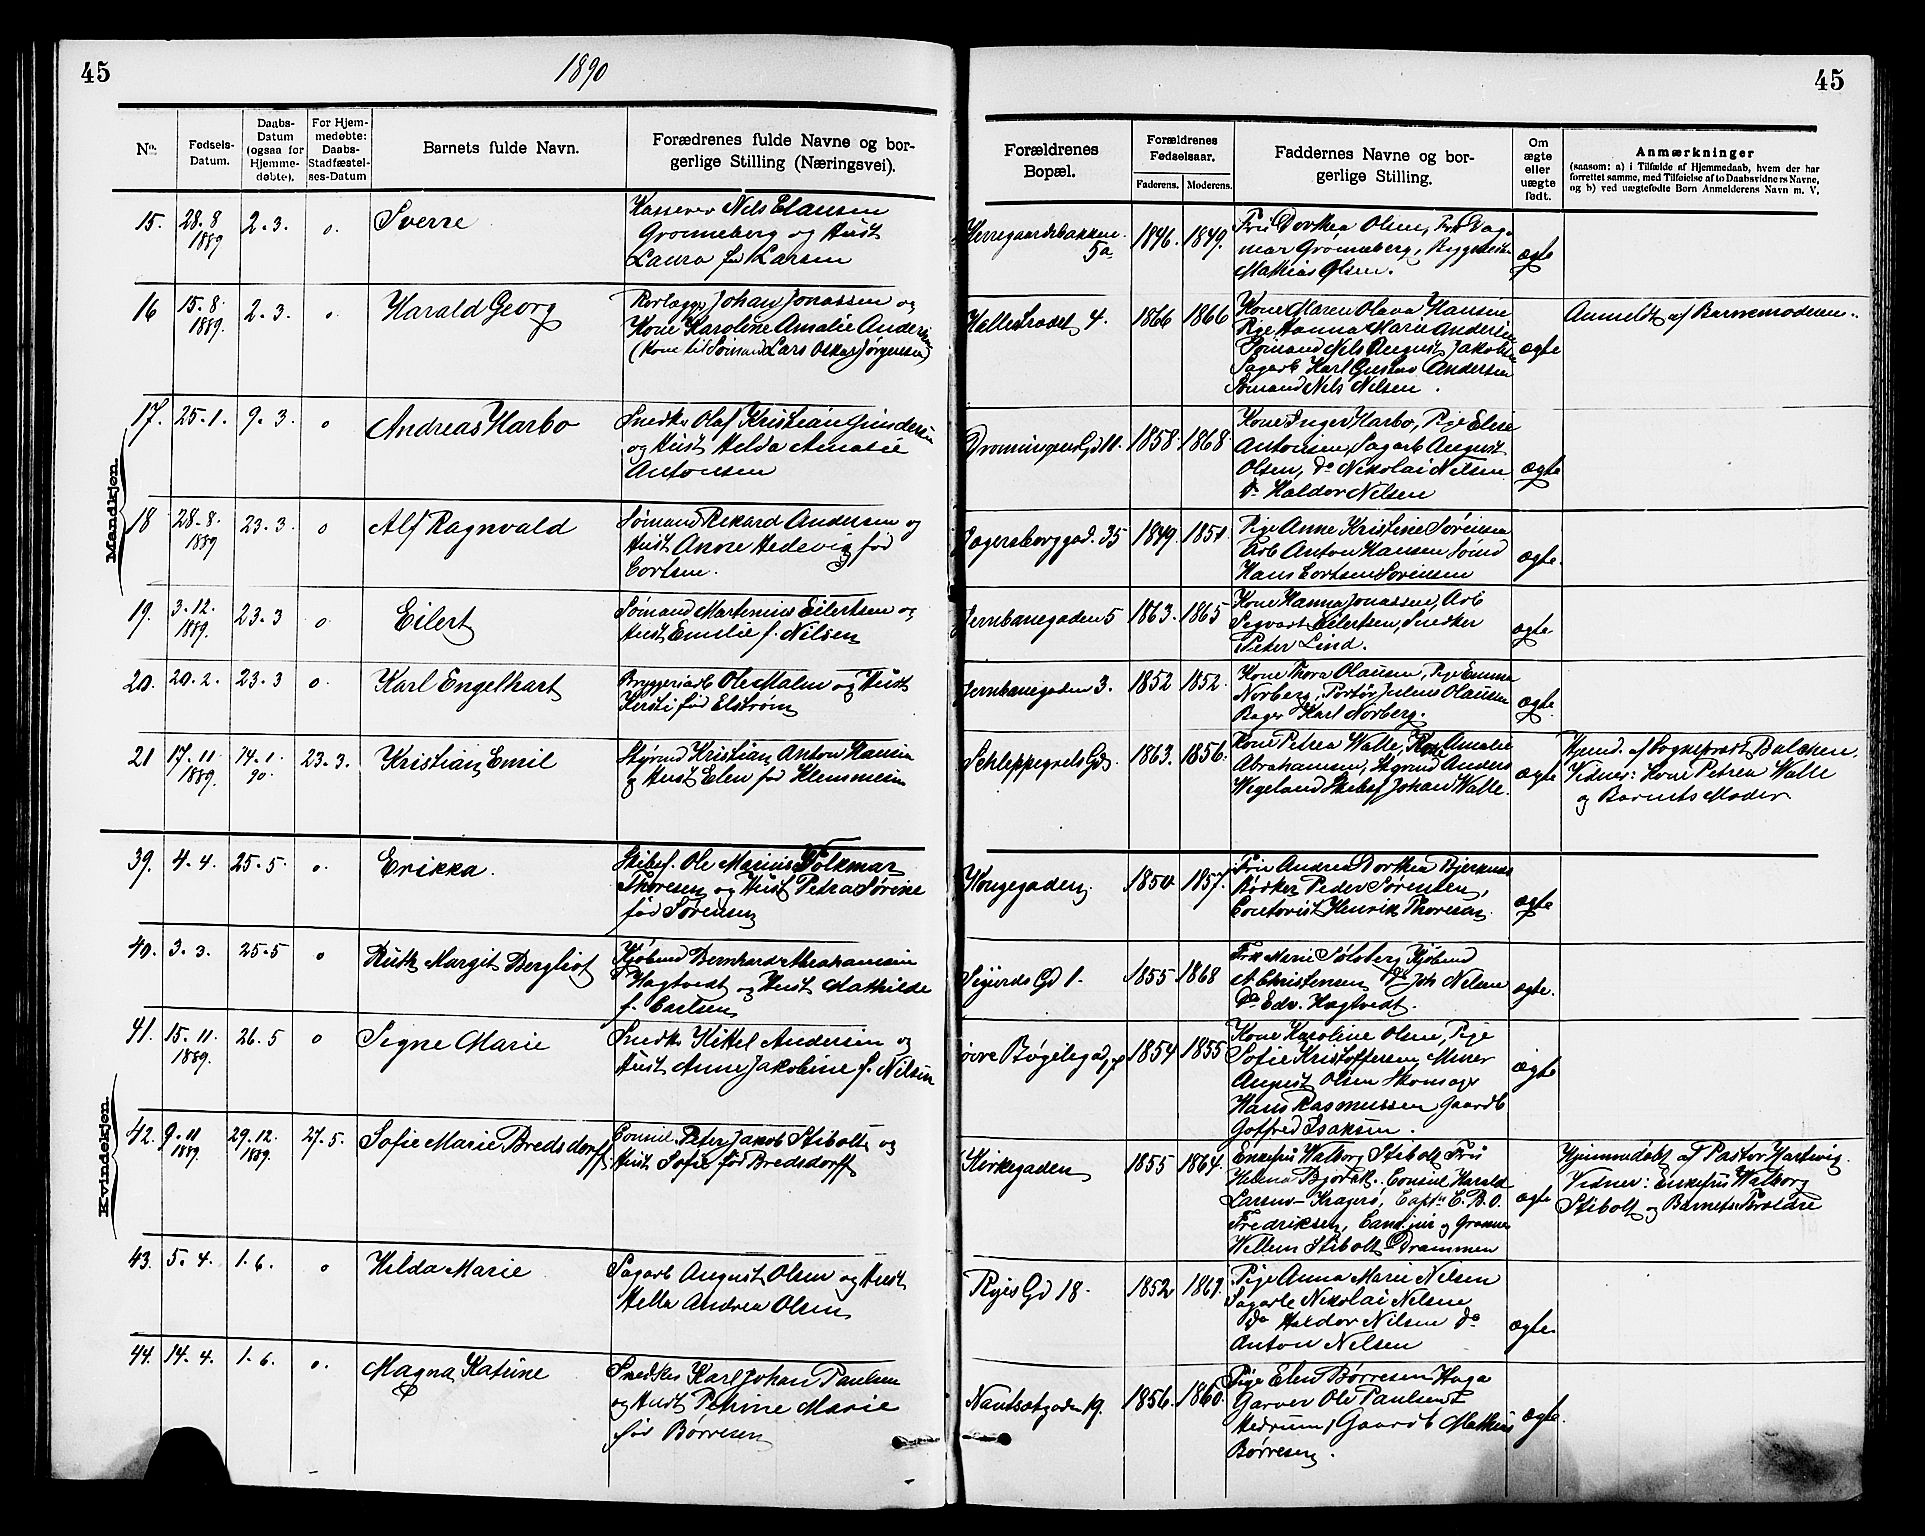 45
1890
45
No.
Fødsels-Datum.
Daabs-Datum (ogsaa for Hjemme-døbte).
For Hjem-medøbte: Daabs-Stadfæstel-ses-Datum
Barnets fulde Navn.
Forældrenes fulde Navne og bor-
gerlige Stilling (Næringsvei).
Forældrenes
Bopæl.
Forældrenes
Fødselsaar.
Faderens. Moderens.
Faddernes Navne og bor-
gerlige Stilling.
Om
ægte
eller
uægte
født.
Anmærkninger
(saasom: a) i Tilfælde af Hjemmedaab, hvem der har
forrettet samme, med Tilføielse af to Daabsvidners Navne,
og b) ved uægtefødte Børn Anmelderens Navn m. V.
Mandkjøn.
15. 28-8 1889 2-3. o. Sverre
Kasserer Nils Clausen
Grønneberg og Hust
Laura fød Larsen
Herregaardsbakken
5a
1846. 1849.
Fru Dorthea Olsen, Frk Dag-
mar Grønneberg,
Mathias Olsen.
ægte
16 15-8 1889. 2-3. o Harald Georg
Rørlægger Johan Jonassen og
Kone Karoline Amalie Andersen
(Kone til Sømand Lars Oskar Jørgensen)
4. 1866 1866
Kone Maren Olava Hansen
Pige Hanna Marie Andersen
Sømand Nils August Jakobsen
Sagarb Karl Gustav Andersen
Sømand Nils Nilsen.
ægte
Anmeldt af Barnemoderen.
17. 25-1. 9-3. o Andreas Harbo
Snedker Olaf Kristian Gundersen
og Hust Helda Amalie
Antonsen
Dronningens Gd 11. 1858. 1868.
Kone Inger Harbo, Pige Elise
Antonsen, Sagarb August
Olsen, do Nikolai Nilsen
do Haldor Nilsen
ægte
18 28-8. 1889 23-3. o Alf Ragnvald
Sømand Rikard Andersen og
Hust Anne Hedevig fød
Cortsen.
Jegersborggad. 35 1849. 1851.
Pige Anne Kristine Sørensen
Arb Anton Hansen, Sømd
Hans Cortsen Sørensen
ægte.
19. 3-12. 1889. 23-3 o. Eilert
Sømand Martinius Eilertsen og
Hust Emilie f. Nilsen
Jernbanegaden 5 1863. 1865
Kone Hanna Jonassen, Arb
Segvart Eilertsen, Snedker
Peter Lind.
ægte
20. 20-2. 23-3 o. Karl Engelhart
Bryggeriarb Ole Malm og Hust
Kersti fød Elstrøm
Jernbanegaden 3. 1852 1852.
Kone Thora Olausen, Pige Emma
Norberg, Portør Julius Olausen
Bager Karl Norberg.
ægte.
21 17-11. 1889. 14-1. 90. 23-3. Kristian Emil
Styrmd Kristian Anton Hansen
og Hust Elen fød Klemmesen
Schleppegrels Gd. 1863. 1856.
Kone Petrea Walle, Amalie
Abrahamsen, Styrmd Anders
Wegeland Skibsf Johan Walle.
ægte
Hjmd. af Sogneprest Balchen.
Vidner: Kone Petrea Walle
og Barnets Moder
Kvindekjøn.
39. 4-4. 25-5 o. Erikka.
Skibsf. Ole Marius Folkmar
Thoresen og Hust Petra Sørine
fød Sørensen
Kongegaden. 1850 1857.
Fru Andrea Dorthea Bjerknes
Rødker Peder Sørensen,
Contorist Henrik Thoresen.
ægte
40. 3-3. 25-5 o Ruth Margit Bergliot
Kjøbmd Bernhard Abrahamsen
Hagtvedt og Hust Mathilde
f. Carlsen
Sigurds Gd 1. 1855 1868
Frk Marie Solberg, Kjøbmd
A Christensen do Joh Nilsen
do Edv. Hagtvedt.
ægte.
41. 15-11. 1889. 26-5 o Signe Marie
Snedk. Kittel Andersen og
Hust Anne Jakobine f. Nilsen
øvre Bøgeleg 1854 1855
Kone Karoline Olsen, Pige
Sofie Kristoffersen, Murer
August Olsen Skomager
Hans Rasmussen Gaardb
Gotfred Isaksen.
ægte
42. 9-11 1889. 29-12. 1889. 27-5. Sofie Marie Bredsdorff
Consul Peter Jakob Stibolt og
Hust Sofie fød Bredsdorff
Kirkegaden 1855 1864.
Enkefru Walborg Stibolt Fru
Helena Bjørck. Consul Harald
Larsen-Kragerø, Captn C. B. O.
Fredriksen, Cand jur og Grosserer
Willum Stibolt Drammen
ægte
Hjemmedøbt af Pastor Hartvig.
Vidner: Enkefru Walborg
Stibolt og Barnets Forældre
43. 5-4. 1-6. o Hilda Marie
Sagarb August Olsen og Hust
Hella Andrea Olsen
Ryes Gd 18. 1852 1861.
Pige Anna Marie Nilsen
Sagarb Nikolai Nilsen
do Haldor Nilsen do
Anton Nilsen
ægte.
44. 14-4. 1-6. o. Magna Katrine
Snedker Karl Johan Paulsen
og Hust Petrine Marie
fød Børresen
Nansetgaden 19. 1856. 1860.
Pige Elen Børresen Haga
Garver Ole Paulsen
Hedrum, Gaardb Mathias
Børresen.
ægte.